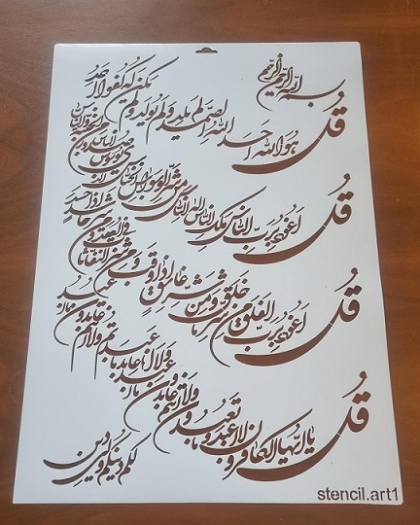 بسم الله الرحمن الرحیم
قل هو الله احد الله الصمد لم یلد و لم یولد و لم یکن له کفوا احد
قل اعوذ برب الناس ملک الناس اله الناس من شر الوسواس الخناس الذی یوسوس فی صدور الناس من الجنة و الناس
قل اعوذ برب الفلق من شر ما خلق و من شر غاسق اذا وقب و من شر النفاثات فی العقد و من شر حاسد اذا حسد
قل یا ایها الکافرون لا اعبد ما تعبدون ولا انتم عابدون ما اعبد ولا انا عابد ما عبدتم ولا انتم عابدون ما اعبد
لکم دینکم ولی دین
stencil.art1